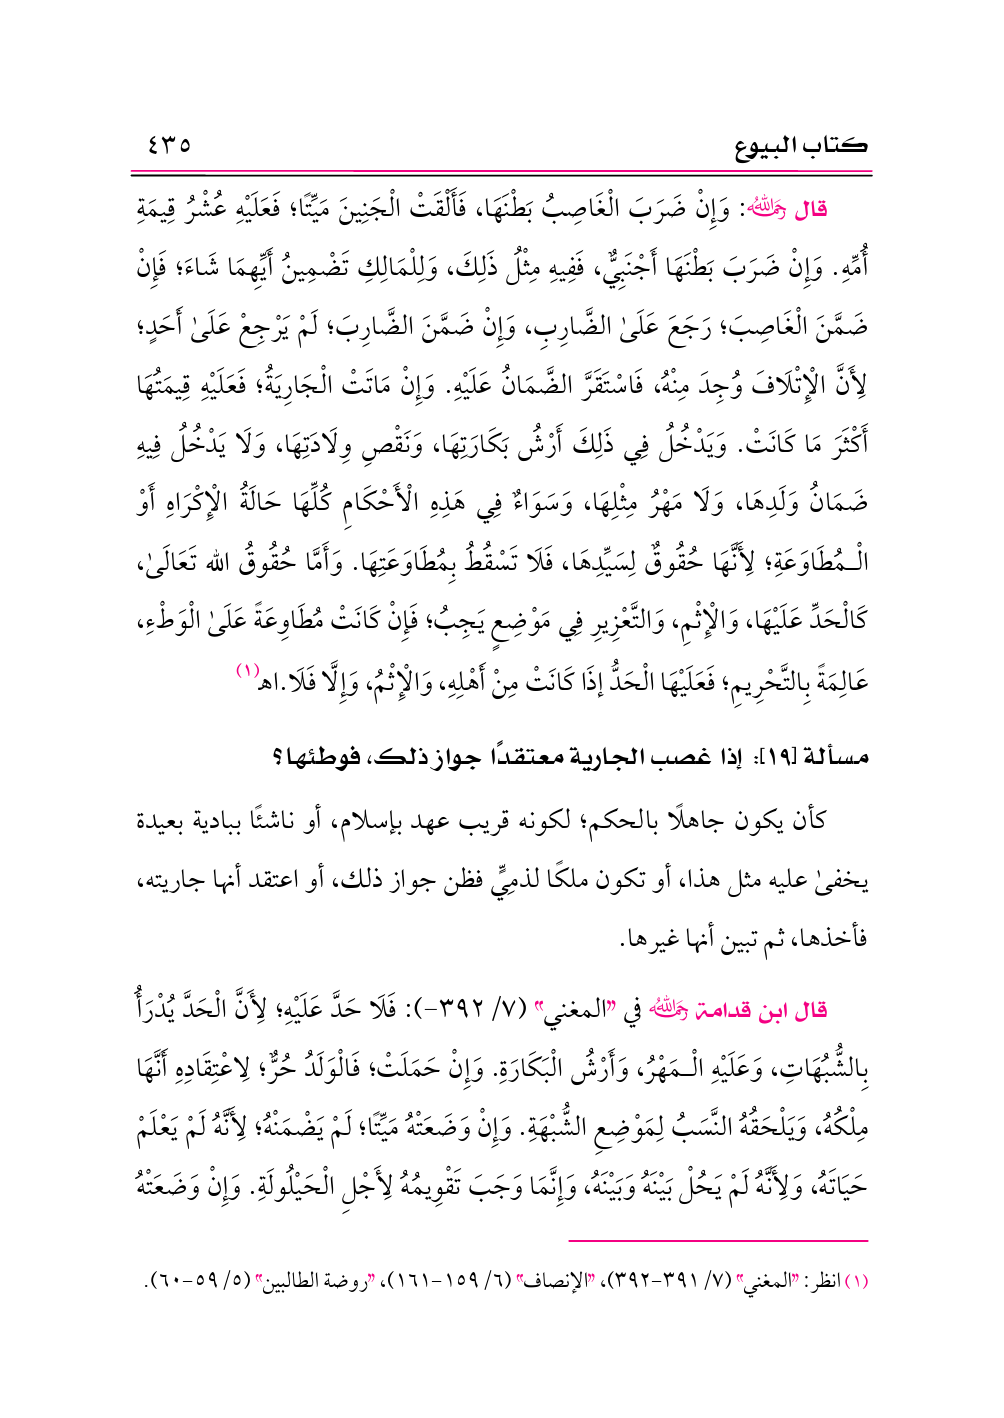 كتاب البيوع ٤٣٥
قال رَحِمَهُ اللهُ: وَإِنْ ضَرَبَ الْغَاصِبُ بَطْنَهَا، فَأَلْقَتْ الْجَنِينَ مَيِّتًا؛ فَعَلَيْهِ عُشْرُ قِيمَةِ
أُمِّهِ. وَإِنْ ضَرَبَ بَطْنَهَا أَجْنَبِيٌّ، فَفِيهِ مِثْلُ ذَلِكَ، وَلِلْمَالِكِ تَضْمِينُ أَيِّهِمَا شَاءَ؛ فَإِنْ
ضَمَّنَ الْغَاصِبَ؛ رَجَعَ عَلَىٰ الضَّارِبِ، وَإِنْ ضَمَّنَ الضَّارِبَ؛ لَمْ يَرْجِعْ عَلَىٰ أَحَدٍ؛
لِأَنَّ الْإِتْلَافَ وُجِدَ مِنْهُ، فَاسْتَقَرَّ الضَّمَانُ عَلَيْهِ. وَإِنْ مَاتَتْ الْجَارِيَةُ؛ فَعَلَيْهِ قِيمَتُهَا
أَكْثَرَ مَا كَانَتْ. وَيَدْخُلُ فِي ذَلِكَ أَرْشُ بَكَارَتِهَا، وَنَقْصِ وِلَادَتِهَا، وَلَا يَدْخُلُ فِيهِ
ضَمَانُ وَلَدِهَا، وَلَا مَهْرُ مِثْلِهَا، وَسَوَاءٌ فِي هَذِهِ الْأَحْكَامِ كُلِّهَا حَالَةُ الْإِكْرَاهِ أَوْ
الْـمُطَاوَعَةِ؛ لِأَنَّهَا حُقُوقٌ لِسَيِّدِهَا، فَلَا تَسْقُطُ بِمُطَاوَعَتِهَا. وَأَمَّا حُقُوقُ الله تَعَالَىٰ،
كَالْحَدِّ عَلَيْهَا، وَالْإِثْمِ، وَالتَّعْزِيرِ فِي مَوْضِعٍ يَجِبُ؛ فَإِنْ كَانَتْ مُطَاوِعَةً عَلَىٰ الْوَطْءِ،
عَالِمَةً بِالتَّحْرِيمِ؛ فَعَلَيْهَا الْحَدُّ إذَا كَانَتْ مِنْ أَهْلِهِ، وَالْإِثْمُ، وَإِلَّا فَلَا.اهـ(١)
مسألة [١٩]: إذا غصب الجارية معتقدًا جواز ذلك، فوطئها؟
كأن يكون جاهلًا بالحكم؛ لكونه قريب عهد بإسلام، أو ناشئًا ببادية بعيدة
يخفىٰ عليه مثل هذا، أو تكون ملكًا لذميٍّ فظن جواز ذلك، أو اعتقد أنها جاريته،
فأخذها، ثم تبين أنها غيرها.
قال ابن قدامة رَحِمَهُ اللهُ في "المغني" (٧/ ٣٩٢-): فَلَا حَدَّ عَلَيْهِ؛ لِأَنَّ الْحَدَّ يُدْرَأُ
بِالشُّبُهَاتِ، وَعَلَيْهِ الْـمَهْرُ، وَأَرْشُ الْبَكَارَةِ. وَإِنْ حَمَلَتْ؛ فَالْوَلَدُ حُرٌّ؛ لِاعْتِقَادِهِ أَنَّهَا
مِلْكُهُ، وَيَلْحَقُهُ النَّسَبُ لِمَوْضِعِ الشُّبْهَةِ. وَإِنْ وَضَعَتْهُ مَيِّتًا؛ لَمْ يَضْمَنْهُ؛ لِأَنَّهُ لَمْ يَعْلَمْ
حَيَاتَهُ، وَلِأَنَّهُ لَمْ يَحُلْ بَيْنَهُ وَبَيْنَهُ، وَإِنَّمَا وَجَبَ تَقْوِيمُهُ لِأَجْلِ الْحَيْلُولَةِ. وَإِنْ وَضَعَتْهُ
(١) انظر: "المغني" (٧/ ٣٩١-٣٩٢)، "الإنصاف" (٦/ ١٥٩-١٦١)، "روضة الطالبين" (٥/ ٥٩-٦٠).